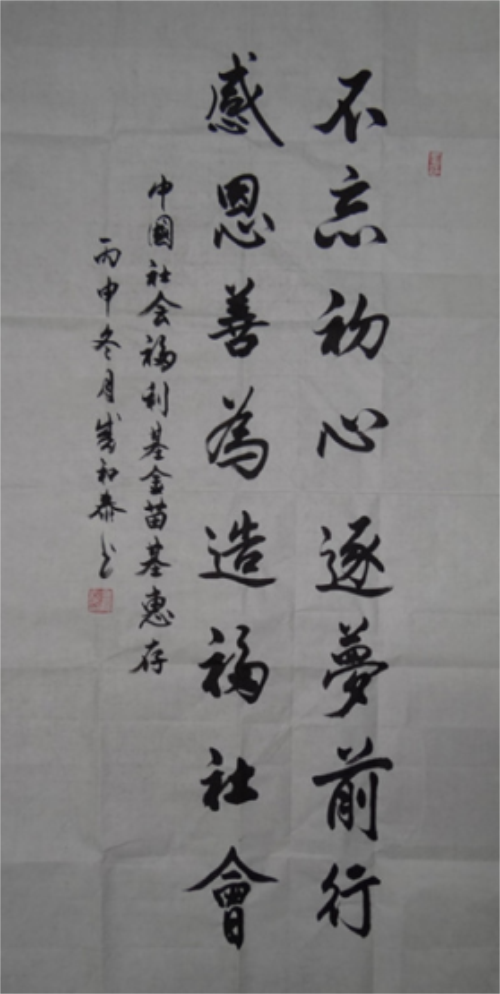 不忘初心逐夢前行
感恩善為造福社會
中國社会福利基金苗基惠存
丙申冬月 初泰